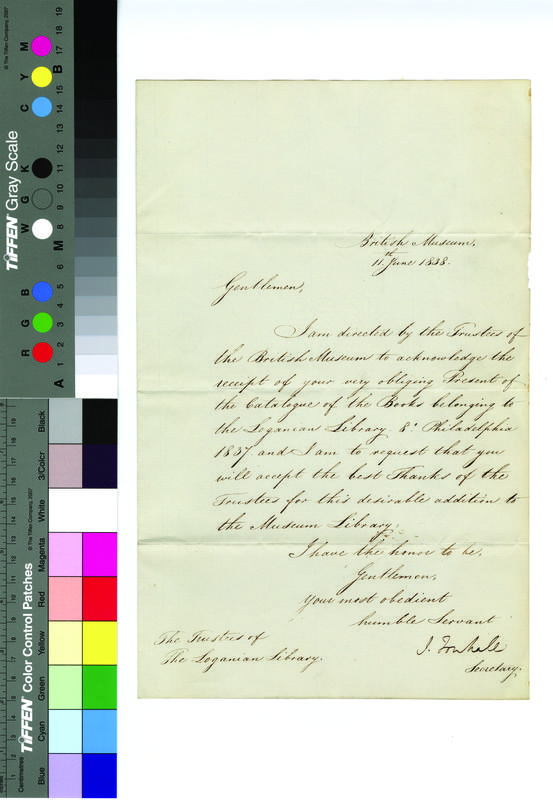 British Museum,
11th June 1838.
Gentlemen,
I am directed by the Trustees of
the British Museum to acknowledge the
receipt of your very obliging Present of
the Catalogue of the Books belonging to
the Loganian Library 8° Philadelphia
1837 and I am to request that you
will accept the best Thanks of the
Trustees for this desirable addition to
the Museum Library.
I have the honor to be,
Gentlemen,
Your most obedient
humble Servant
J. Forshall
Secretary.
The Trustees of
The Loganian Library.
TIFFEN Gray Scale
© The Tiffen Company, 2007
R G B W G K C Y M
A 1 2 3 4 5 6 M 8 9 10 11 12 13 14 15 B 17 18 19
TIFFEN Color Control Patches
© The Tiffen Company, 2007
Blue Cyan Green Yellow Red Magenta White 3/Color Black
Centimetres